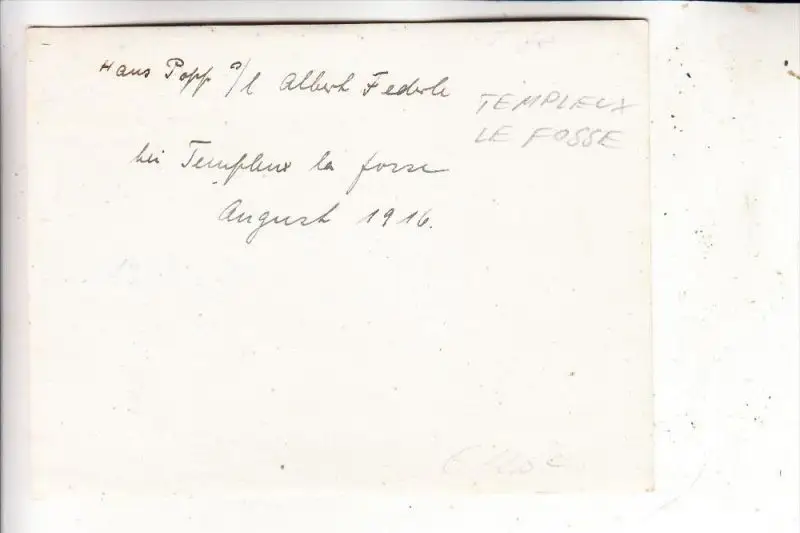 Hans Popp Albert Federle
bei Templeux la fosse
August 1916.
TEMPLEUX
LE FOSSE